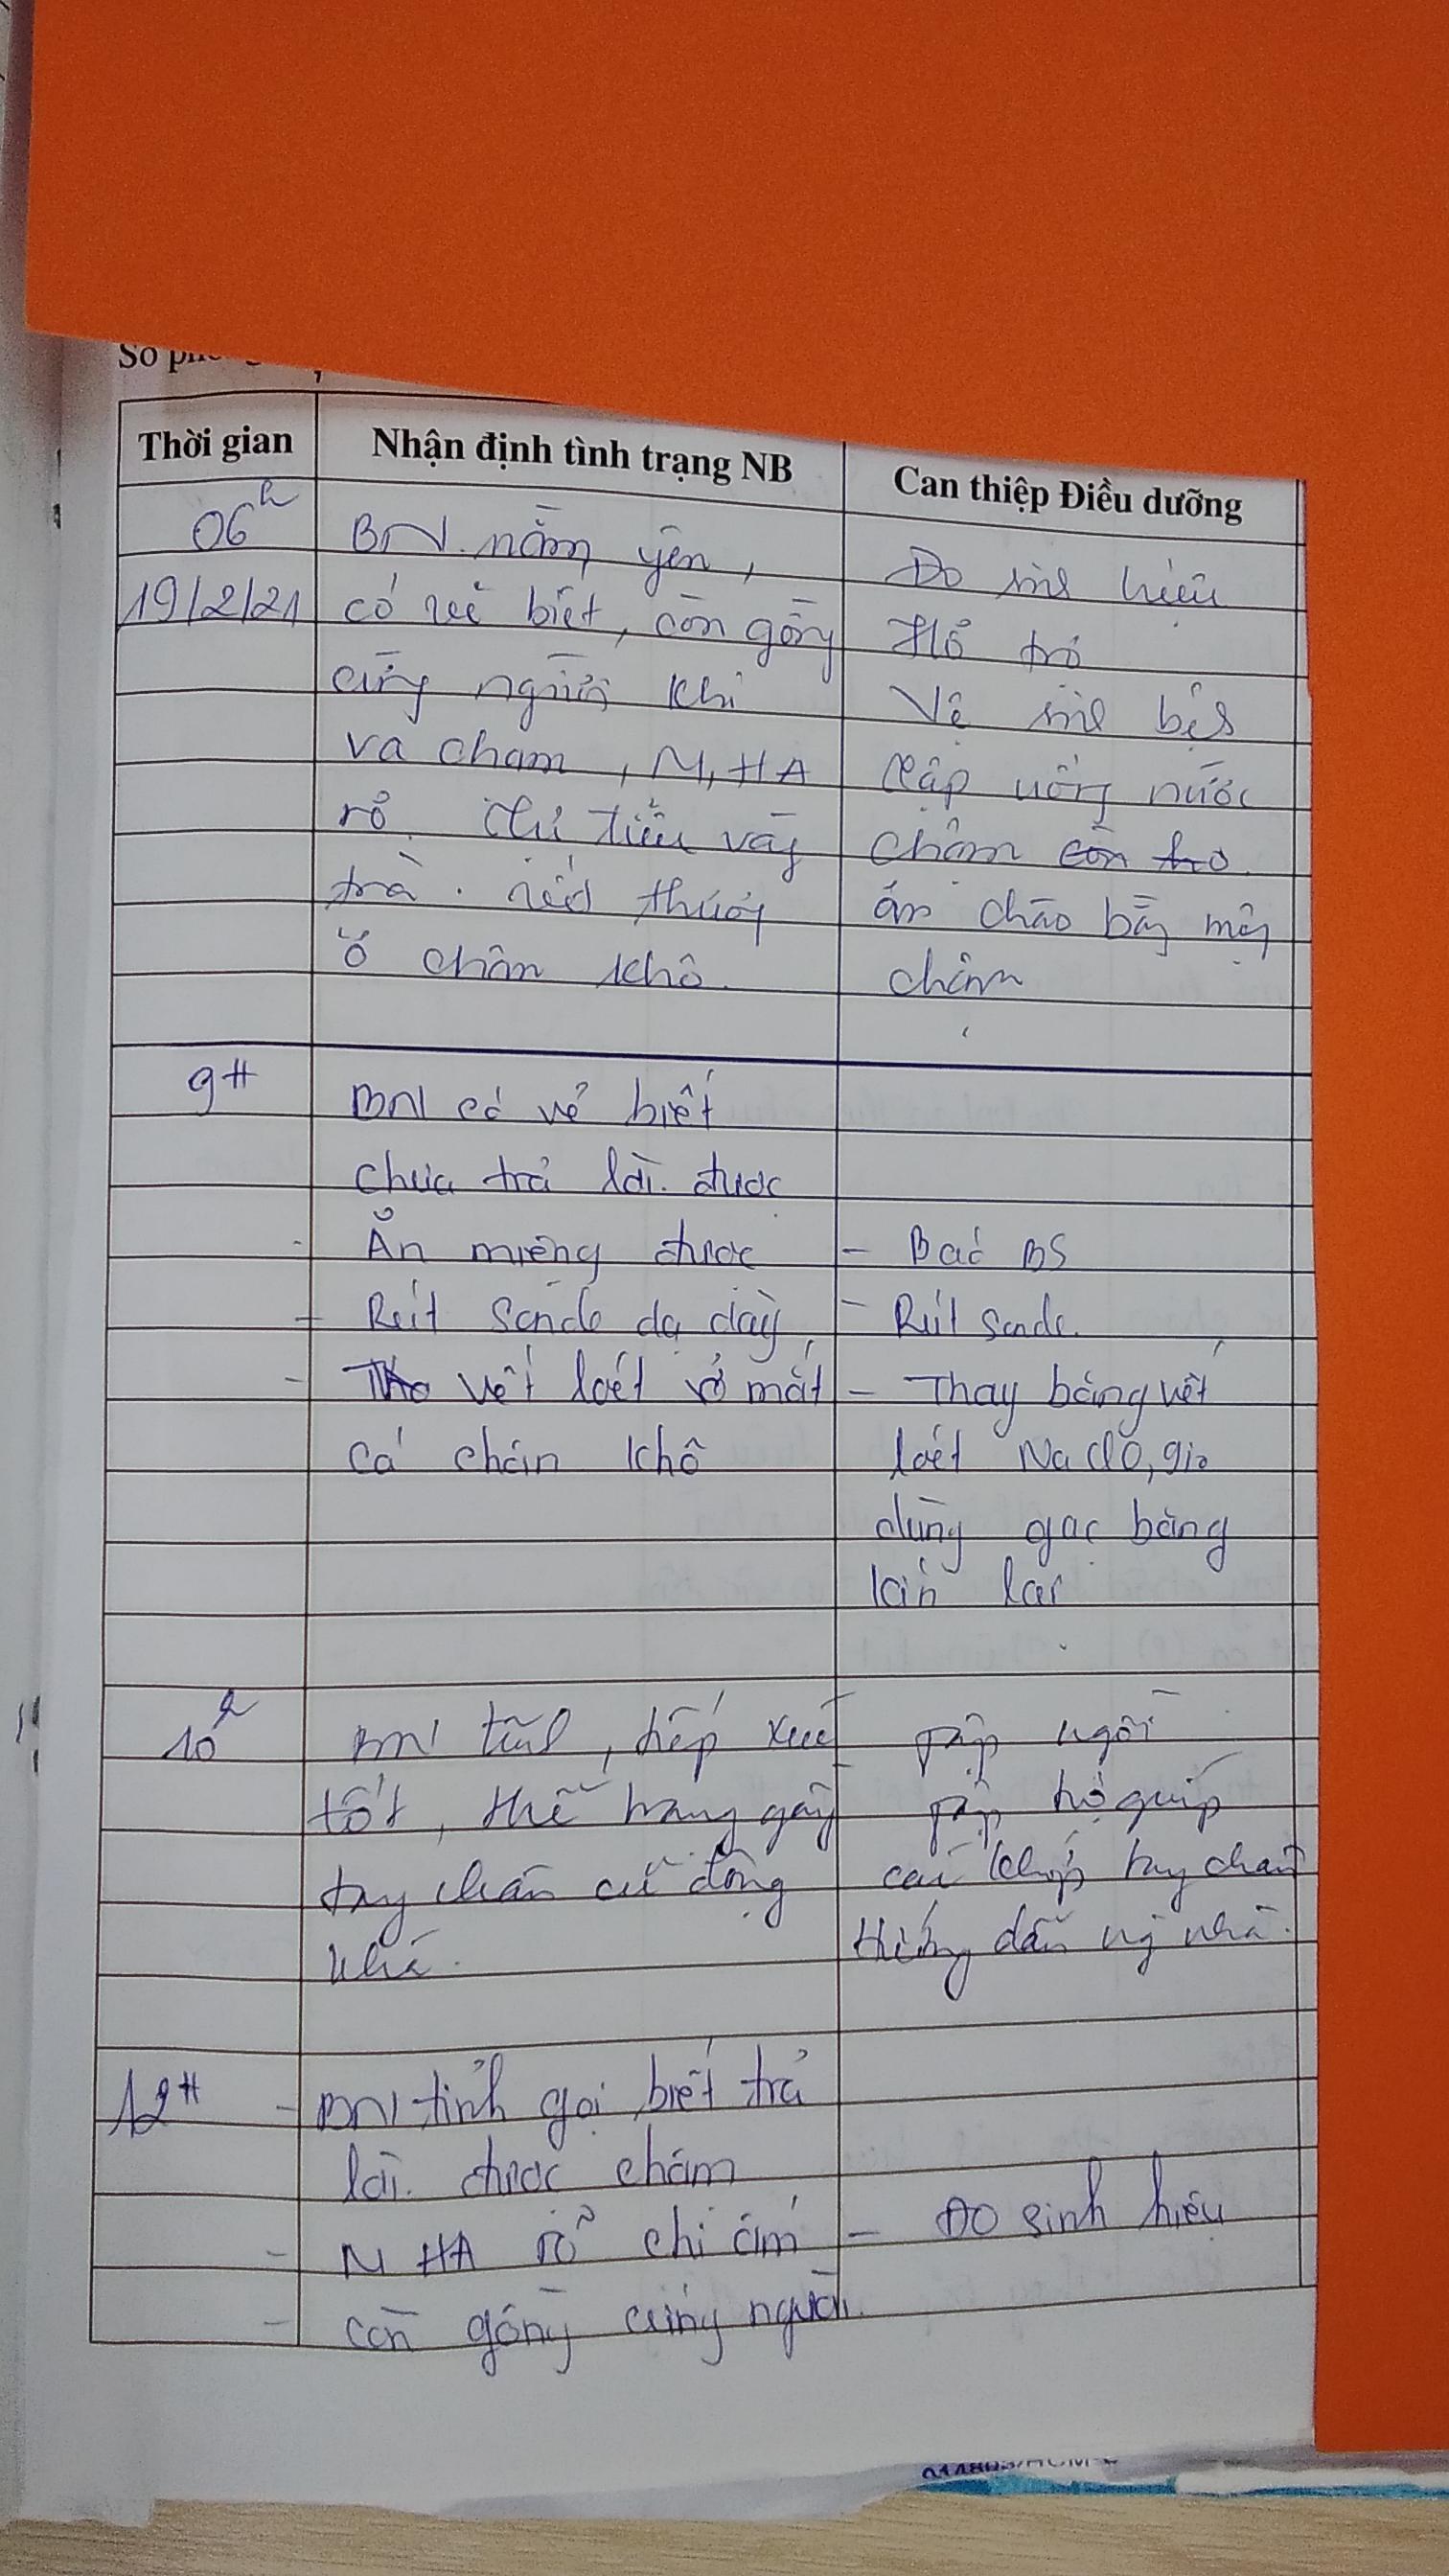 Thời gian
Nhận định tình trạng NB
Can thiệp Điều dưỡng
06h
19/2/21
BN nằm yên,
có vẻ biết, còn gồng
cứng người khi
va chạm, M, HA
rõ. tiểu vàng
trà.
ở chân khô
Đo sinh hiệu
Hỗ trợ
Vệ sinh
tập uống nước
chậm
ăn cháo bằng miệng
chậm
9H
BN có vẻ biết
chưa trả lời được
- Ăn miệng được
- Rút sonde dạ dày
- vết loét ở mắt
cá chân khô
- Báo BS
- Rút sonde
- Thay băng vết
loét NaCl 0,9%
dùng gạc băng
kín lại
10h
BN tỉnh, tiếp xúc
tốt, thể trạng gầy
tay chân cử động
khá.
tập ngồi
tập
các khớp tay chân
Hướng dẫn
12H
- BN tỉnh gọi biết trả
lời được chậm
- M HA rõ chi ấm
- còn gồng cứng người
- Đo sinh hiệu